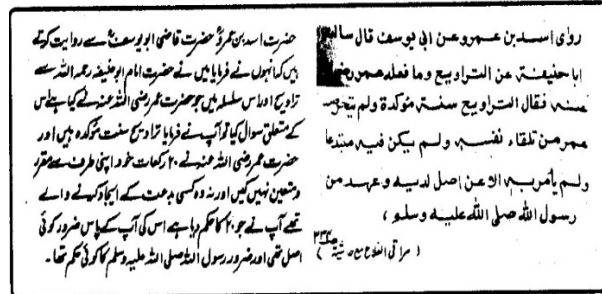 روٰى اسد بن عمرو عن ابی یوسف قال سالت
ابا حنیفة عن التراویح وما فعله عمر رضی
عنه فقال التراویح سنة مؤكدة ولم يتخرص
عمر من تلقاء نفسه ولم یکن فیه مبتدعا
ولم یأمر به الا عن اصل لدیه وعهد من
رسول الله صلی الله علیه وسلم ،
( مراقی الفلاح مع
حضرت اسد بن عمرو حضرت قاضی ابو یوسف سے روایت کرتے
ہیں کہ انہوں نے فرمایا میں نے حضرت امام ابو حنیفہ رحمہ اللہ سے
تراویح اور اس سلسلہ میں جو حضرت عمر رضی اللہ عنہ نے کیا ہے اس
کے متعلق سوال کیا تو آپ نے فرمایا تراویح سنت مؤکدہ ہیں اور
حضرت عمر رضی اللہ عنہ نے ۲۰ رکعات خود اپنی طرف سے مقرر
ومتعین نہیں کیں اور نہ وہ کسی بدعت کے ایجاد کرنے والے
تھے آپ نے جو ۲۰ کا حکم دیا ہے اس کی آپ کے پاس ضرور کوئی
اصل تھی اور ضرور رسول اللہ صلی اللہ علیہ وسلم کا کوئی حکم تھا۔